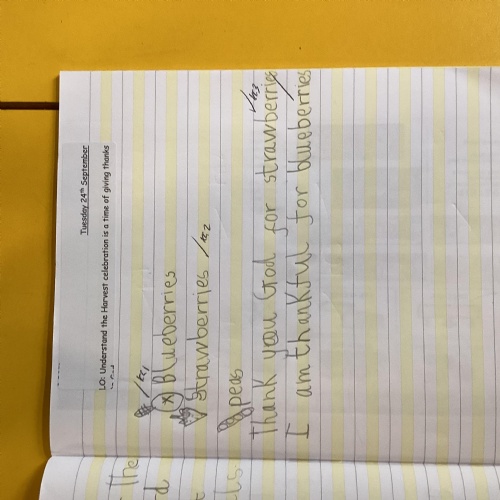 Tuesday 24th September
LO: Understand the Harvest celebration is a time of giving thanks
sc1
x Blueberries
strawberries sc2
peas
Thank you God for strawberries sc3
I am thankful for blueberries
the